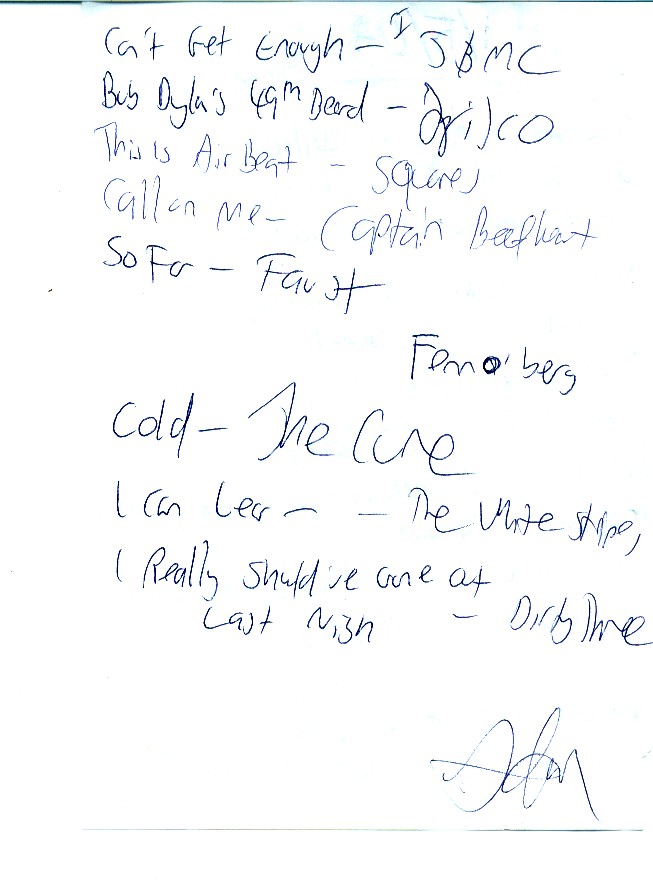 Can't Get Enough - SBMC
Bob Dyla's 49th Beard -
This is Air Beat - Squares
Call on Me - Captain Beefheart
So Far - Faust
Fenn o' berg
Cold - The Cure
I Can Learn - The White Stripes
I Really Should've Gone Out
Last Nigh - Dirty Three
Adam